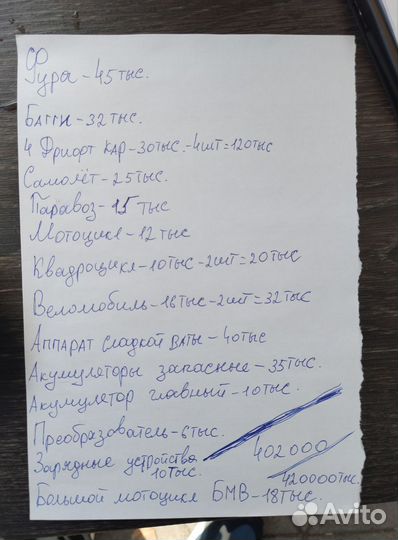 Фура - 45тыс.
Багги - 32тыс.
4 Дриорт кар - 30тыс. - 4шт = 120тыс
Самолёт - 25тыс.
Паравоз - 15 тыс
Мотоцикл - 12тыс
Квадроцикл - 10тыс - 2шт = 20тыс
Веломобиль - 16тыс - 2шт = 32тыс
Аппарат сладкой ваты - 40тыс
Акумуляторы запасные - 35тыс.
Акумулятор главный - 10тыс.
Преобразователь - 6тыс.
402000
Зарядные устройства
10тыс.
420000тыс.
Большой мотоцикл БМВ - 18тыс.
Avito